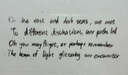 On the vast and dark seas, we met
To different destinations, our paths led
Oh you may forget, or perhaps remember
The beam of light glistening our encounter